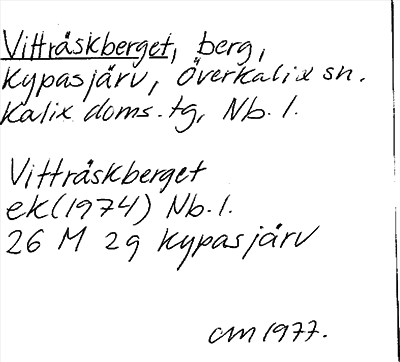 Vitträskberget, berg,
Kypasjärv, Överkalix sn.
Kalix doms.tg, Nb. l.
Vitträskberget
ek (1974) Nb. l.
26 M 2g Kypasjärv
cm 1977.